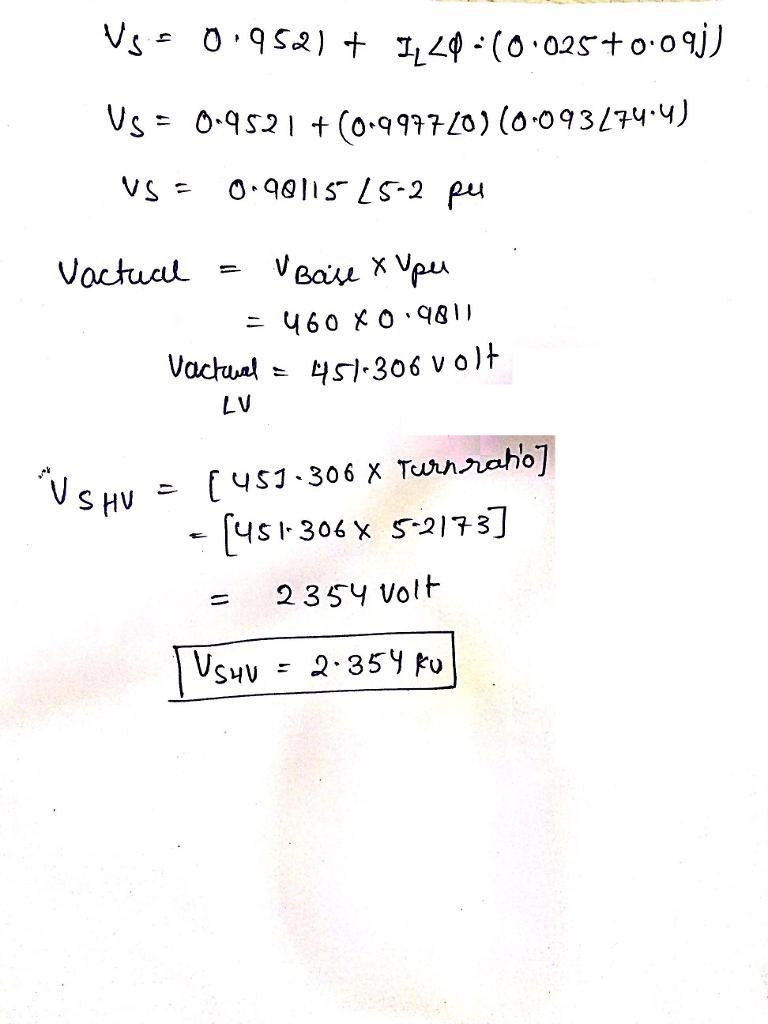 Vs = 0.9521 + IL∠φ : (0.025+0.09j)
Vs = 0.9521 + (0.9977∠0) (0.093∠74.4)
Vs = 0.98115 ∠5.2 pu
Vactual = VBase x Vpu
= 460 x 0.9811
Vactual = 451.306 volt
LV
VSHV = [451.306 x Turnratio]
= [451.306 x 5.2173]
= 2354 volt
VSHV = 2.354 kv